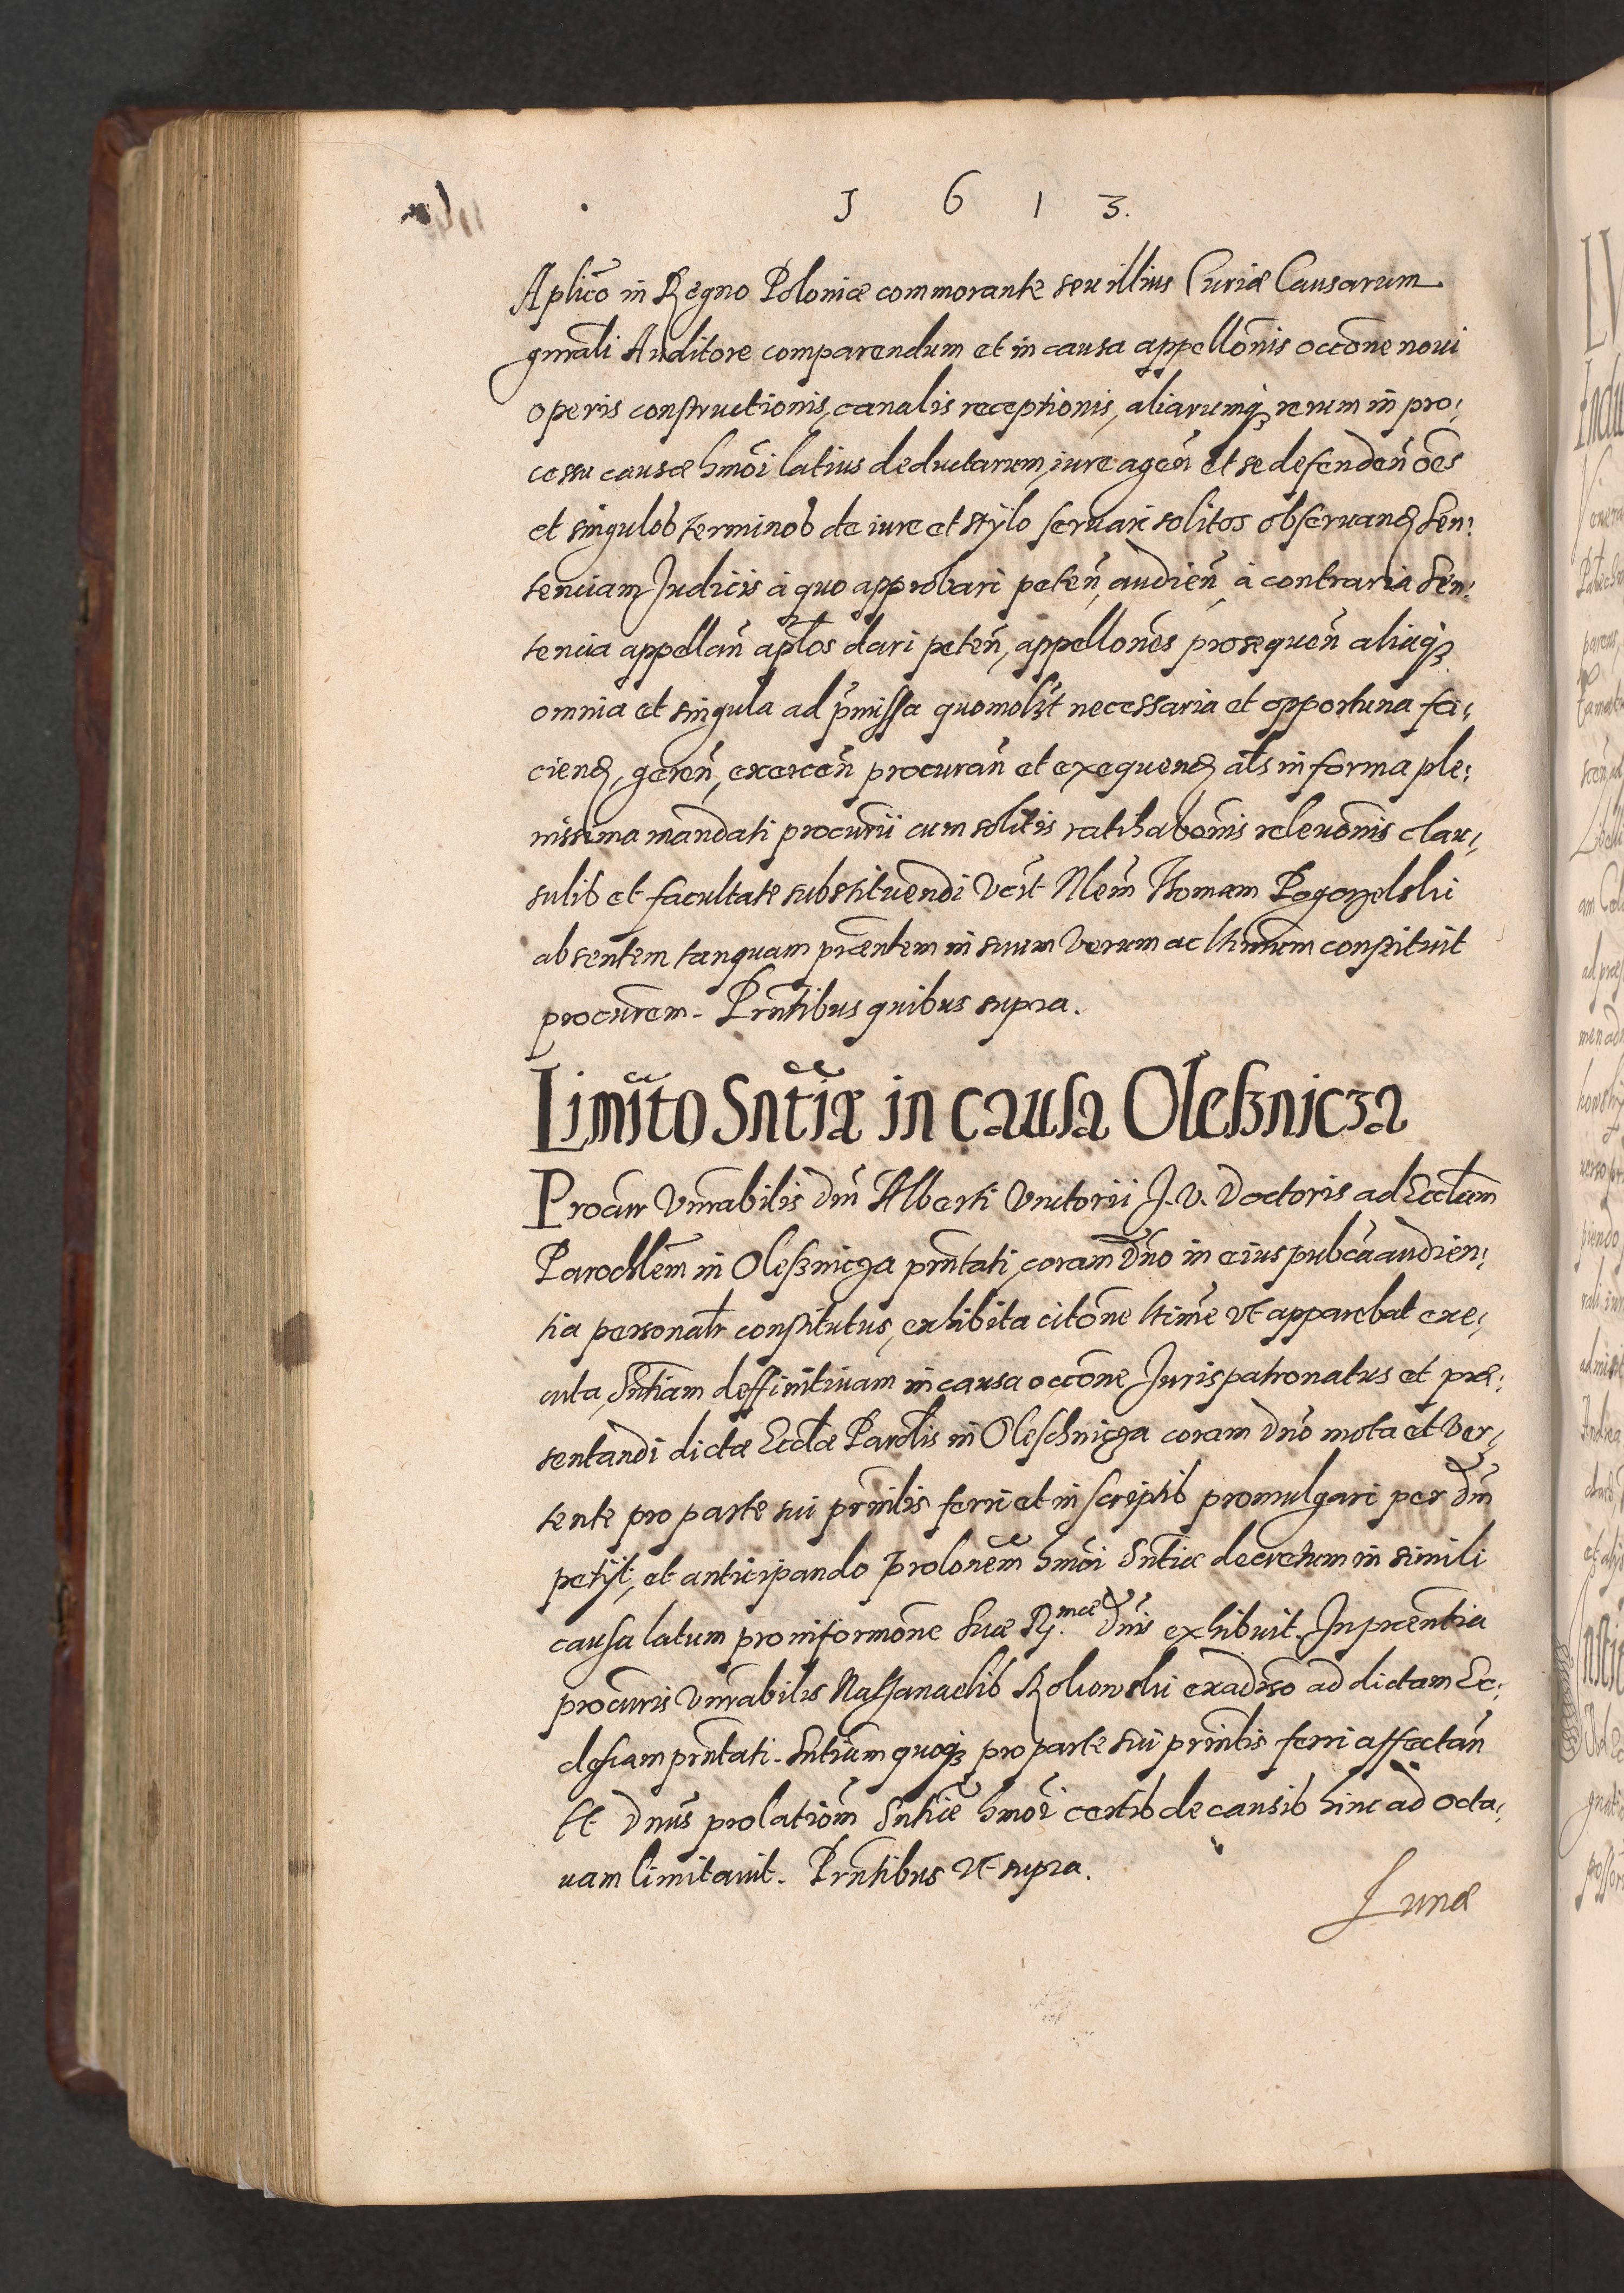 1 6 1 3.
Aplico in Regno Poloniæ commorante seu illius Curiæ Causarum
gnrali Auditore comparendum et in causa appellonis occone noui
operis constructionis, canalis receptionis, aliarumq; rerum in pro:
cessu causæ hmoi latius deductarum, iure agen et se defenden oes
et singulos terminos de iure et stylo seruari solitos obseruand Sen:
tenciam Judicis à quo approbari peten, audien, à contraria Sen:
tencia appellan aplos dari peten, appellones prosequen aliaq;
omnia et singula ad pmissa quomolzt necessaria et opportuna fa:
ciend, geren, exercen procuran et exequend als in forma ple:
nissima mandati procurii cum solitis ratihabonis releuonis clau:
sulis et facultate substituendi Vert Nlem Thomam Pogorzelski
absentem tanquam præntem in suum verum ac ltimum constituit
procurem. Prntibus quibus supra.
Limito Sntiæ in causa Oleßnicza
Procur Vnrabilis dni Alberti Vnitorii J. V. Doctoris ad Eccliam
Parochlem in Oleßnicza prntati, coram Dno in eius pubca audien:
tia personalr constitutus, exhibita citone ltime vt apparebat exe:
cuta, Sntiam deffinitiuam in causa occone Jurispatronatus et præ:
sentandi dictæ Eccliæ Parolis in Oleschnicza coram Dno mota et ver:
tente pro parte sui prnlis ferri et in scriptis promulgari per dnm
petijt, et anticipando prolonem hmoi Sntiæ decretum in simili
causa latum pro informone Suæ R.mæ Dnis exhibuit. In præntia
procuris Vnrabilis Nassanaelis Rokowski exaduso ad dictam Ec:
clesiam prntati. Sntiam quoq; pro parte sui prinlis ferri affectan
Et Dnus prolationem Sntiæ hmoi certis de causis hinc ad octa:
uam limitauit. Prntibus vt supra.
Lunæ